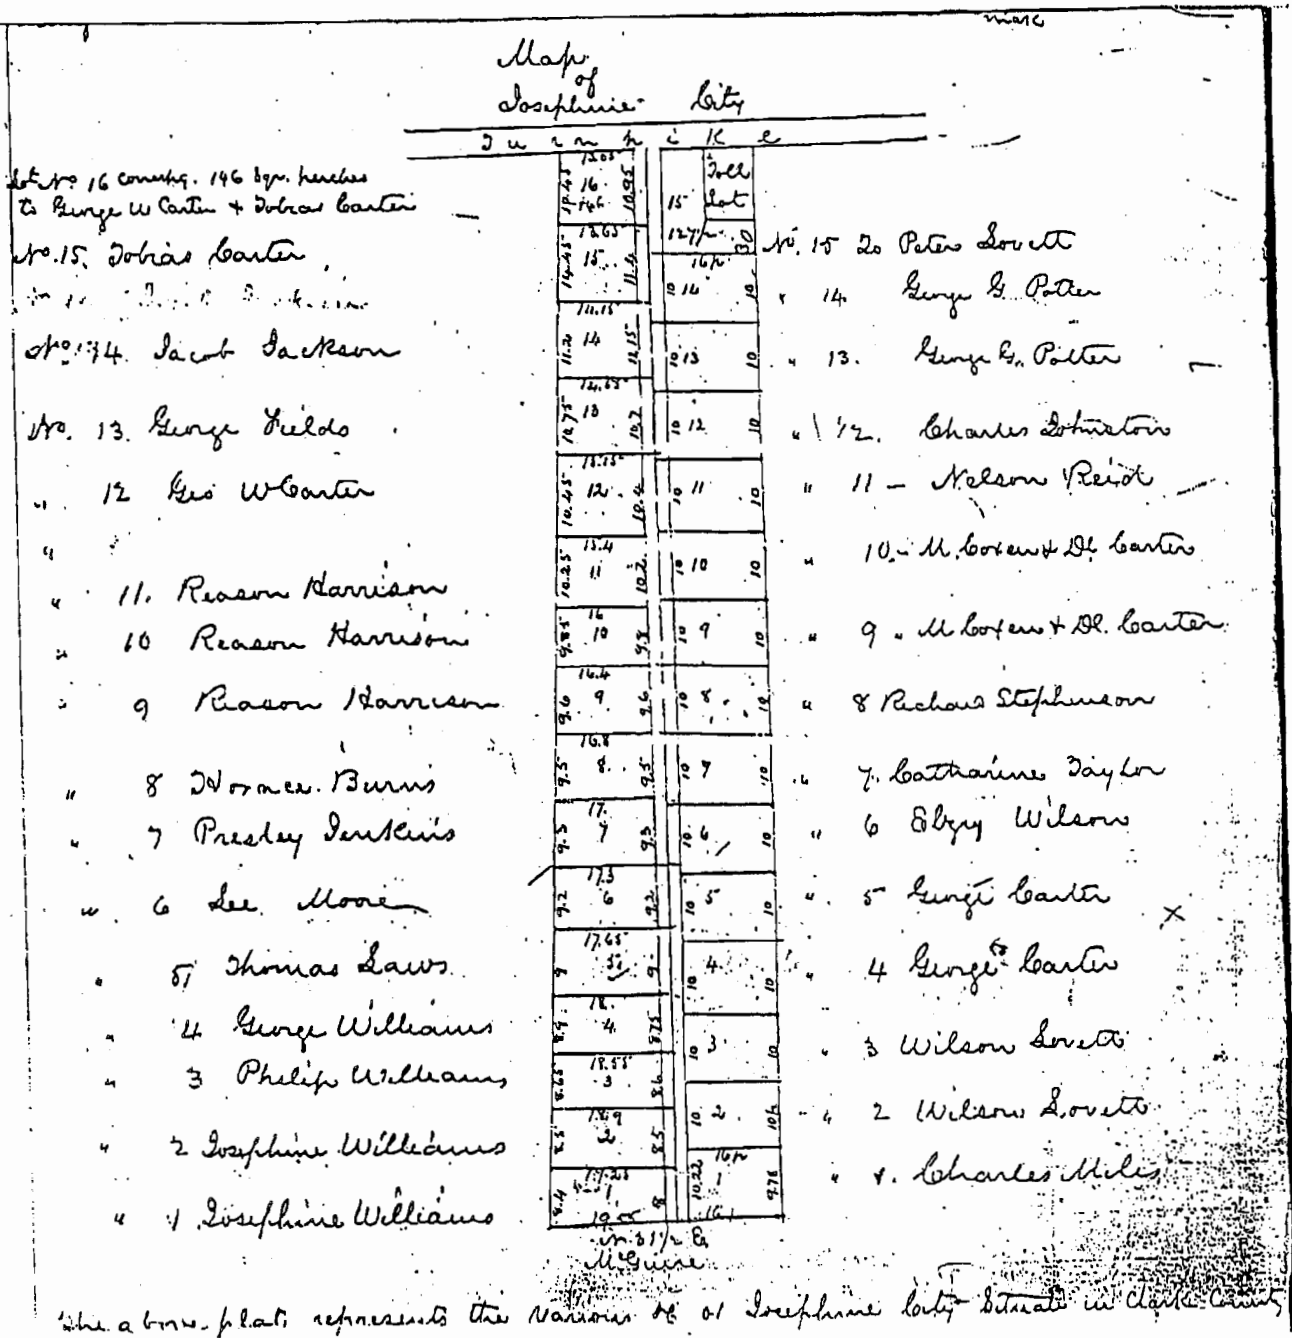 mark
Map
of
Josephine City
Turnpike
Lot No 16 conts'g. 146 Sqr. perches
to George W Carter & Tobias Carter
No. 15. Tobias Carter
No. 14. Jacob Jackson
No. 13. George Fields
" 12 Geo W Carter
"
" 11. Reason Harrison
" 10 Reason Harrison
" 9 Reason Harrison
" 8 Horace Burns
" 7 Presley Jenkins
" 6 Lee Moore
" 5 Thomas Laws
" 4 George Williams
" 3 Philip Williams
" 2 Josephine Williams
" 1 Josephine Williams
13.05
16
146
10.95
13.65
15
14.45
11.4
14.15
14
11.2
12.15
14.65
13
10.75
10.7
15.15
12
10.45
10.4
15.4
11
10.25
10.2
16
10
9.85
9.8
16.4
9
9.6
9.6
16.8
8
9.5
9.5
17.
7
9.3
9.3
17.3
6
9.2
9.2
17.65
5
9
9
18.
4
8.9
8.75
18.55
3
8.65
8.6
18.9
2
8.5
8.5
1
8.4
8
Toll
Lot
15
127p
30
16p
10 14 10
10 13 10
10 12 10
10 11 10
10 10 10
10 9 10
10 8 10
10 7 10
10 6 10
10 5 10
10 4 10
10 3 10
10 2 10p
16p
10.22 1 9.78
16
McGuire
No. 15 To Peter Lovett
" 14. George G. Potter
" 13. George G. Potter
" 12. Charles Johnston
" 11 - Nelson Reid
" 10 - M. Coxen & Dl. Carter
" 9 " M Coxen & Dl. Carter
" 8 Richard Stephenson
" 7. Catharine Taylor
" 6 Elzey Wilson
" 5 George Carter
" 4 George Carter
" 3 Wilson Lovett
" 2 Wilson Lovett
" 1. Charles Miles
The above plat represents the various of Josephine City Situate in Clark County